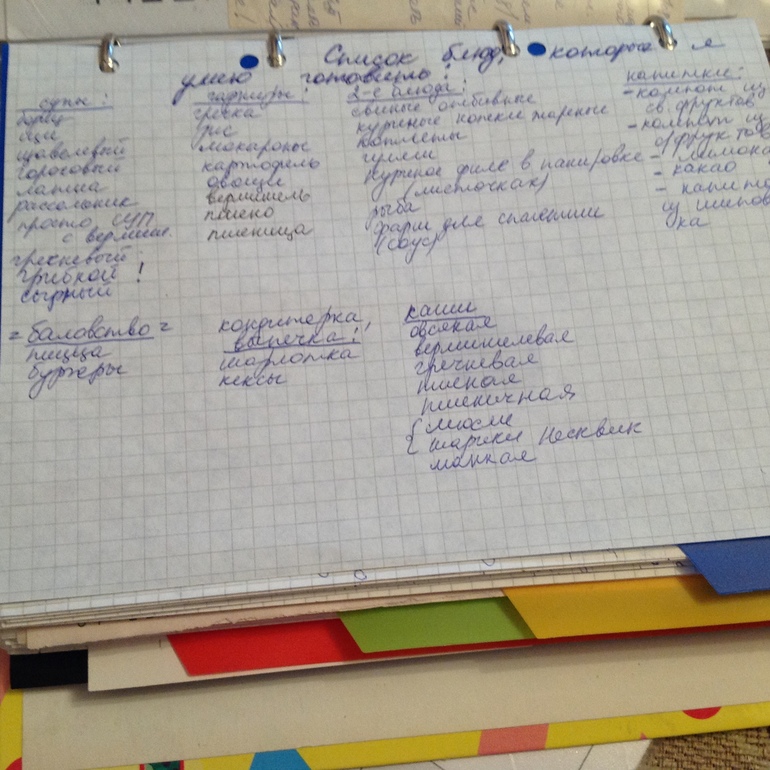 Список блюд, которые я
умею готовить!
супы:
борщ
щи
щавелевый
гороховый
лапша
рассольник
просто суп
с вермише.
гречневый
грибной !
сырный
гарниры:
гречка
рис
макароны
картофель
овощи
вермишель
пшено
пшеница
2-е блюда:
свиные отбивные
куриные ножки жареные
котлеты
гуляш
куриное филе в панировке
(листочках)
рыба
фарш для спагетти
(соус)
напитки:
- компот из
св. фруктов
- компот из
с/фруктов
- лимона
- какао
- напито
из шипов
ка
= баловство =
пицца
бургеры
кондитерка,
выпечка:
шарлотка
кексы
каши
овсяная
вермишелевая
гречневая
пшеная
пшеничная
{ мюсли
{ шарики Несквик
манная